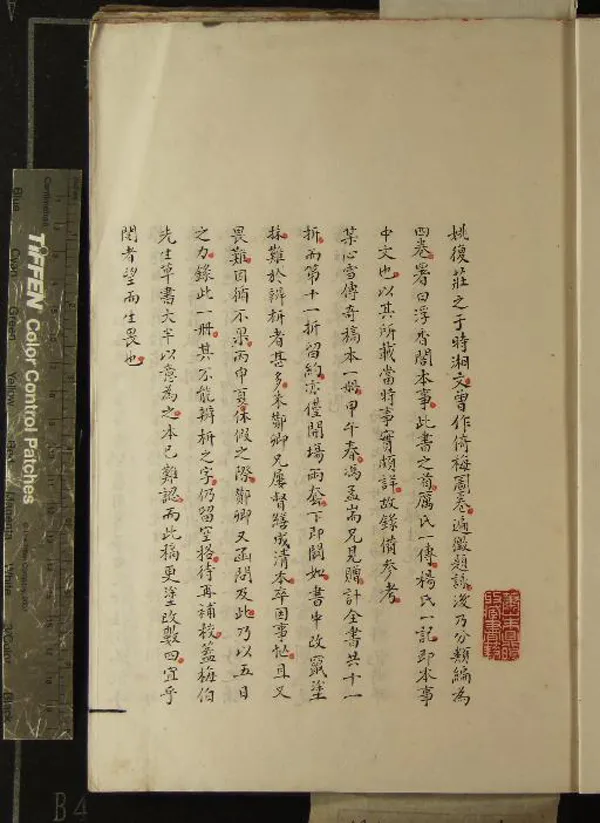 姚復莊之于時湘文曾作倚梅圖卷遍徵題詠後乃分類編為
四卷署曰浮香閣本事此書之首厲氏一傳楊氏一記即本事
中文也以其所載當時事實頗詳故錄備參考
某心雪傳奇稿本一册甲午春馮孟嵩兄見贈計全書共十一
折而第十一折留約亦僅開場兩套下即闕如書中改竄塗
抹難於辨析者甚多來鄭卿兄屢督繕成清本卒因事忙且又
畏難因循不果丙申夏休假之際鄭卿又函問及此乃以五日
之力錄此一册其不能辨析之字仍留空格待再補校蓋梅伯
先生草書大半以意為之本已難認而此稿更塗改數四宜乎
閱者望而生畏也
Blue
Cyan
Green
Yellow
TIFFEN Color Control Patches
Black
B4